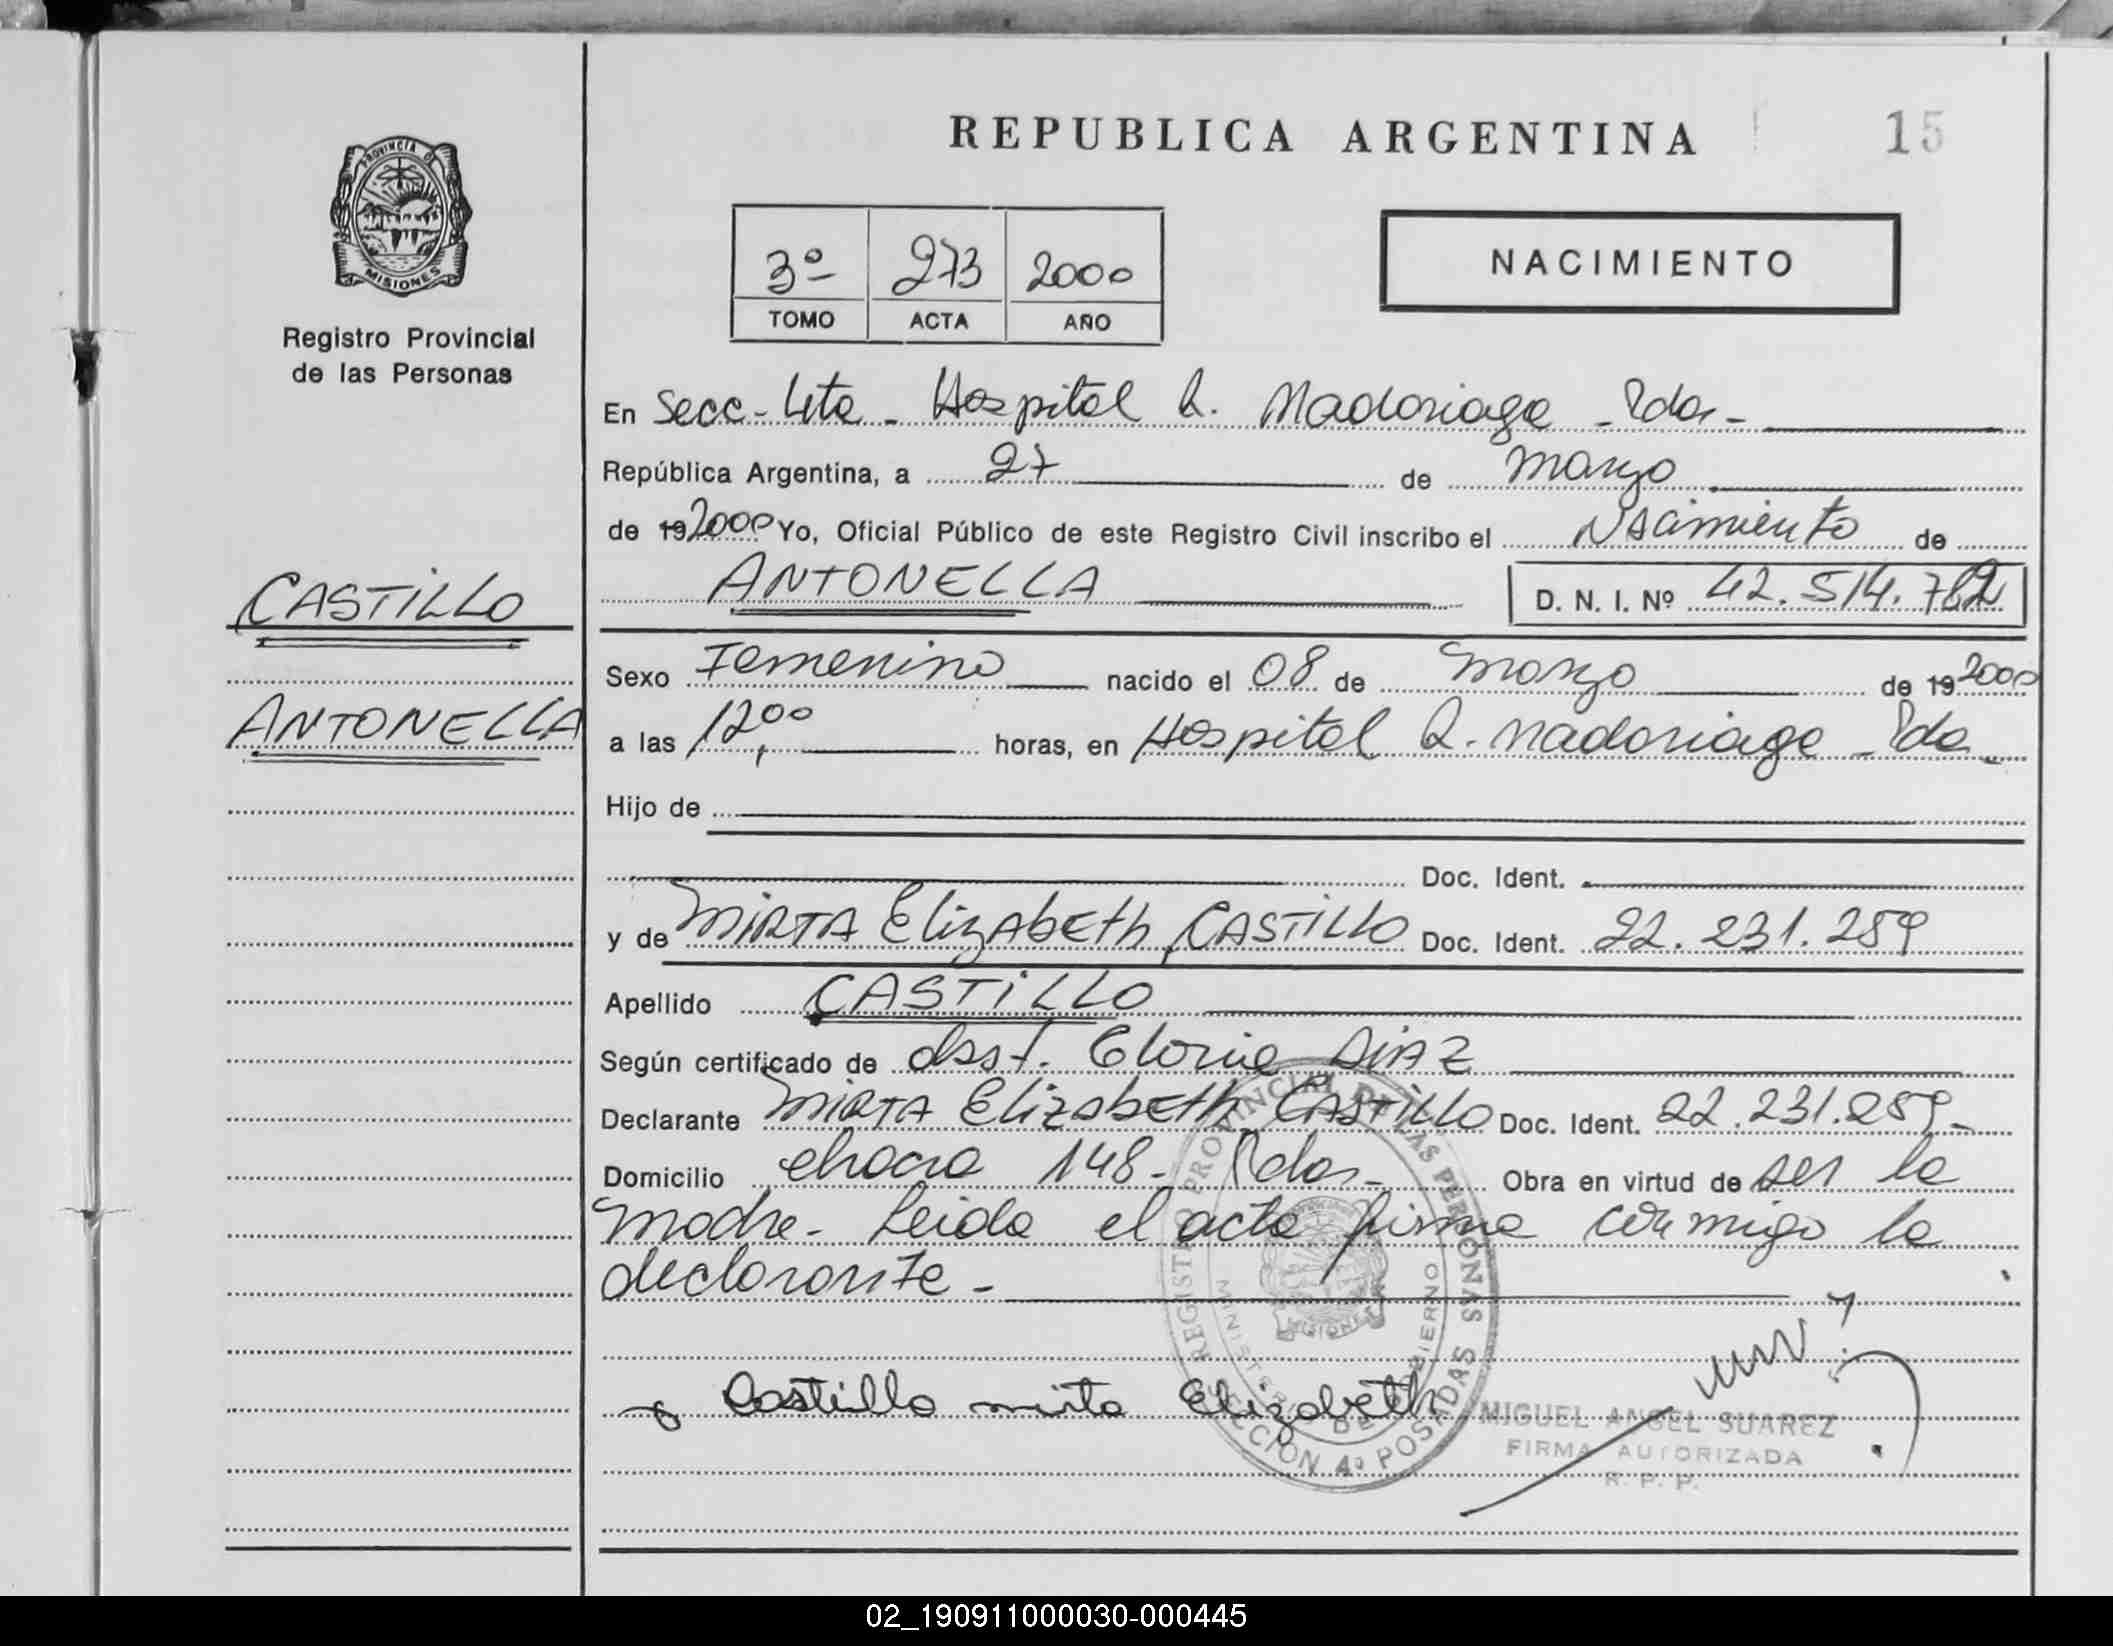 REPUBLICA ARGENTINA
15
PROVINCIA DE
MISIONES
Registro Provincial
de las Personas
3º 273 2000
TOMO ACTA AÑO
NACIMIENTO
En Secc-4ta - Hospital R. Madariaga - Pdas -
República Argentina, a 27 de Marzo
de 19 2000 Yo, Oficial Público de este Registro Civil inscribo el Nacimiento de
ANTONELLA D. N. I. Nº 42.514.782
CASTILLO
ANTONELLA
Sexo Femenino nacido el 08 de Marzo de 19 2000
a las 12,00 horas, en Hospital R. Madariaga - Pdas
Hijo de
Doc. Ident.
y de MIRTA ElizAbETh CASTILLO Doc. Ident. 22.231.259
Apellido CASTILLO
Según certificado de obst. Gloria DiAZ
Declarante MIRTA ElizAbETh CASTILLO Doc. Ident. 22.231.259-
Domicilio chacra 148- Pdas - Obra en virtud de ser la
Madre- Leida el acta firma conmigo la
declarante -
Castillo mirta Elizabeth
REGISTRO PROVINCIAL DE LAS PERSONAS
MINISTERIO DE GOBIERNO
MISIONES
SECCION 4º POSADAS
MIGUEL ANGEL SUAREZ
FIRMA AUTORIZADA
R. P. P.
02_190911000030-000445